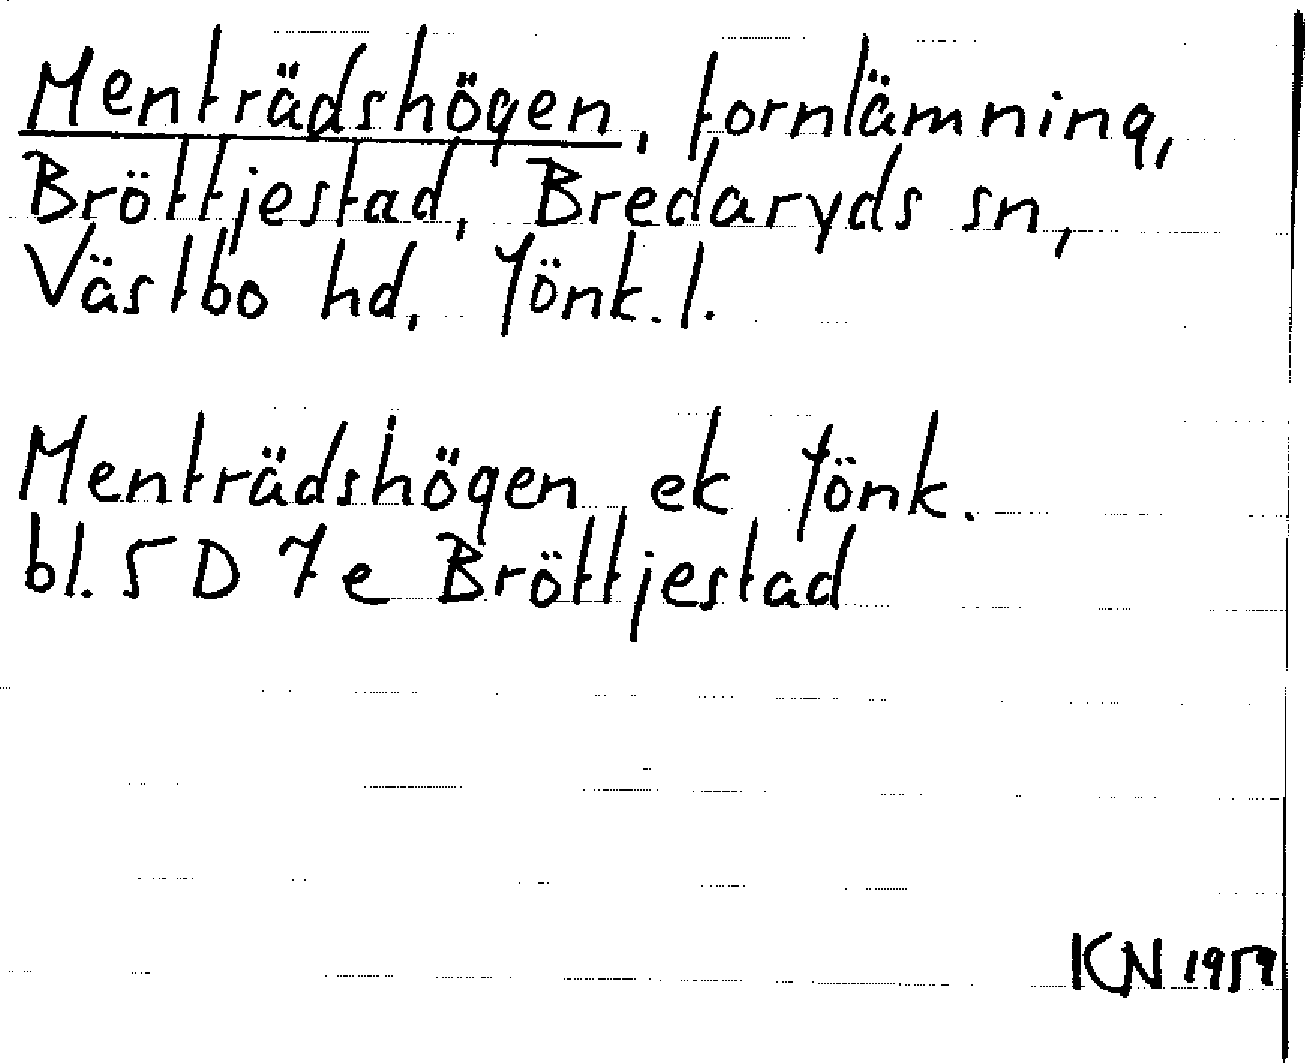 Menträdshögen, fornlämning,
Bröttjestad, Bredaryds sn,
Västbo hd, Jönk. l.
Menträdshögen ek Jönk.
bl. 5 D 7 e Bröttjestad
KN 1959